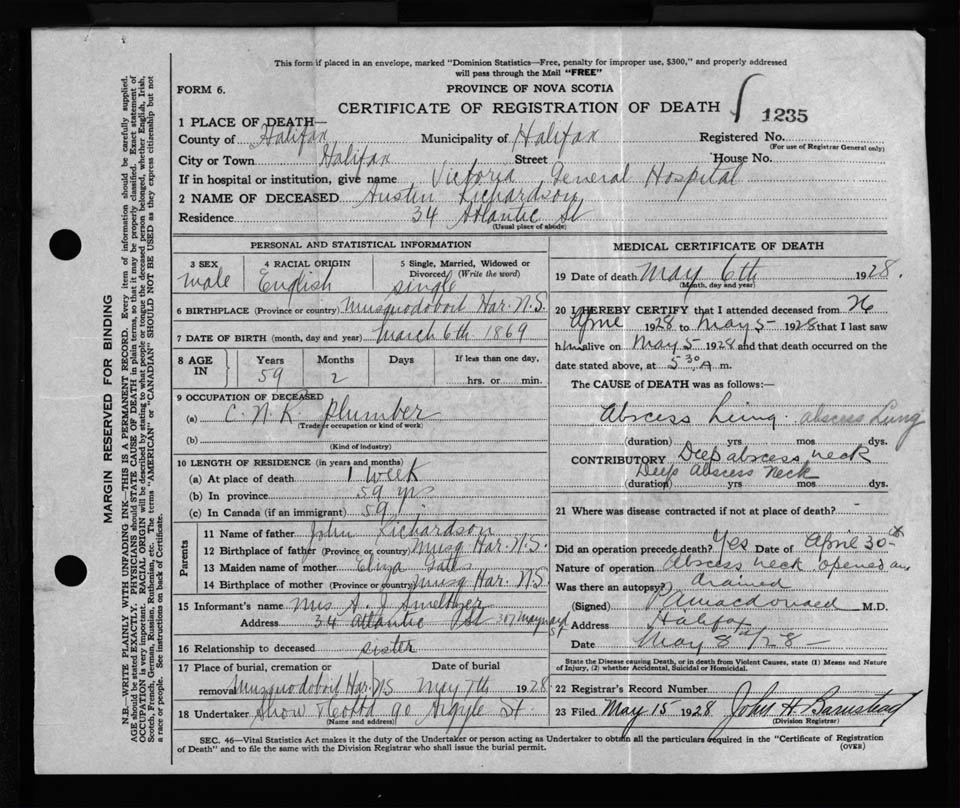 This form if placed in an envelope, marked "Dominion Statistics—Free, penalty for improper use, $300," and properly addressed
will pass through the Mail "FREE"
FORM 6.
PROVINCE OF NOVA SCOTIA
CERTIFICATE OF REGISTRATION OF DEATH
1235
1 PLACE OF DEATH—
County of Halifax Municipality of Halifax Registered No.
(For use of Registrar General only)
City or Town Halifax Street House No.
If in hospital or institution, give name Victoria General Hospital
2 NAME OF DECEASED Austin Richardson
Residence 34 Atlantic St
(Usual place of abode)
PERSONAL AND STATISTICAL INFORMATION
3 SEX 4 RACIAL ORIGIN 5 Single, Married, Widowed or
Divorced (Write the word)
male English single
6 BIRTHPLACE (Province or country) Musquodoboit Har. N.S.
7 DATE OF BIRTH (month, day and year) March 6th 1869
8 AGE IN Years Months Days If less than one day,
59 2 hrs. or min.
9 OCCUPATION OF DECEASED
(a) C. N. R. Plumber
(Trade or occupation or kind of work)
(b)
(Kind of industry)
10 LENGTH OF RESIDENCE (in years and months)
(a) At place of death 1 week
(b) In province 59 yrs
(c) In Canada (if an immigrant) 59
Parents
11 Name of father John Richardson
12 Birthplace of father (Province or country) Musq Har. N.S.
13 Maiden name of mother Eliza
14 Birthplace of mother (Province or country) Musq Har. N.S.
15 Informant's name Mrs A. J
Address 34 Atlantic St 307 Maynard St
16 Relationship to deceased sister
17 Place of burial, cremation or Date of burial
removal Musquodoboit Har. NS May 7th 1928
18 Undertaker Snow 90 Argyle St.
(Name and address)
MEDICAL CERTIFICATE OF DEATH
19 Date of death May 6th 1928.
(Month, day and year)
20 I HEREBY CERTIFY that I attended deceased from 26
April 1928 to May 5 1928 that I last saw
him alive on May 5 1928 and that death occurred on the
date stated above, at 5 30 A m.
The CAUSE of DEATH was as follows:
Abscess Lung. abscess Lung
(duration) yrs mos dys.
CONTRIBUTORY Deep abscess neck
Deep Abscess Neck
(duration) yrs mos dys.
21 Where was disease contracted if not at place of death? -
Did an operation precede death? Yes Date of April 30th
Nature of operation Abscess neck opened and
drained
Was there an autopsy?
(Signed) Macdonald M.D.
Address Halifax
Date May 8th/28
State the Disease causing Death, or in death from Violent Causes, state (1) Means and Nature
of Injury, (2) whether Accidental, Suicidal or Homicidal.
22 Registrar's Record Number
23 Filed May 15 1928 John H Barnstead
(Division Registrar)
SEC. 46—Vital Statistics Act makes it the duty of the Undertaker or person acting as Undertaker to obtain all the particulars required in the "Certificate of Registration
of Death" and to file the same with the Division Registrar who shall issue the burial permit.
(OVER)
MARGIN RESERVED FOR BINDING
N.B.—WRITE PLAINLY WITH UNFADING INK—THIS IS A PERMANENT RECORD. Every item of information should be carefully supplied.
AGE should be stated EXACTLY. PHYSICIANS should STATE CAUSE OF DEATH in plain terms, so that it may be properly classified. Exact statement of
OCCUPATION is very important. RACIAL ORIGIN will be described by stating to what people or tongue the deceased person belonged, whether English, Irish,
Scotch, French, German, Russian, Ruthenian, etc. The terms "AMERICAN" or "CANADIAN" SHOULD NOT BE USED as they express citizenship but not
a race or people. See instructions on back of Certificate.